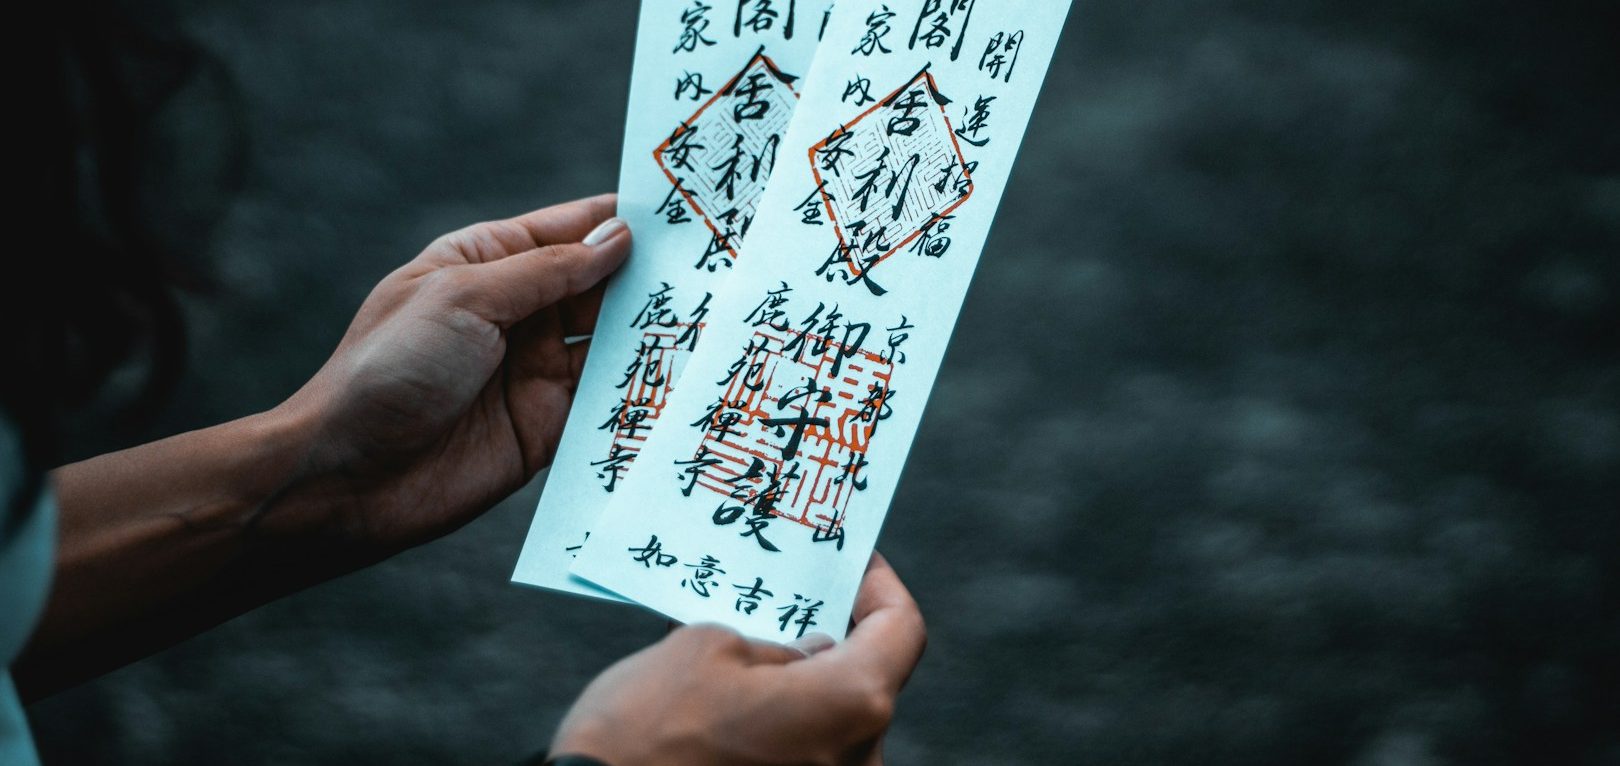 開運招福
閣舍利殿御守護
家内安全
京都北山
鹿苑禅寺
如意吉祥
閣舍利殿
家内安全
鹿苑禅寺